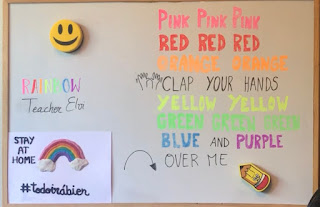 PINK PINK PINK
RED RED RED
ORANGE ORANGE
CLAP YOUR HANDS
YELLOW YELLOW
GREEN GREEN GREEN
BLUE AND PURPLE
OVER ME
RAINBOW
Teacher Elvi
STAY
AT
HOME
#todoirábien